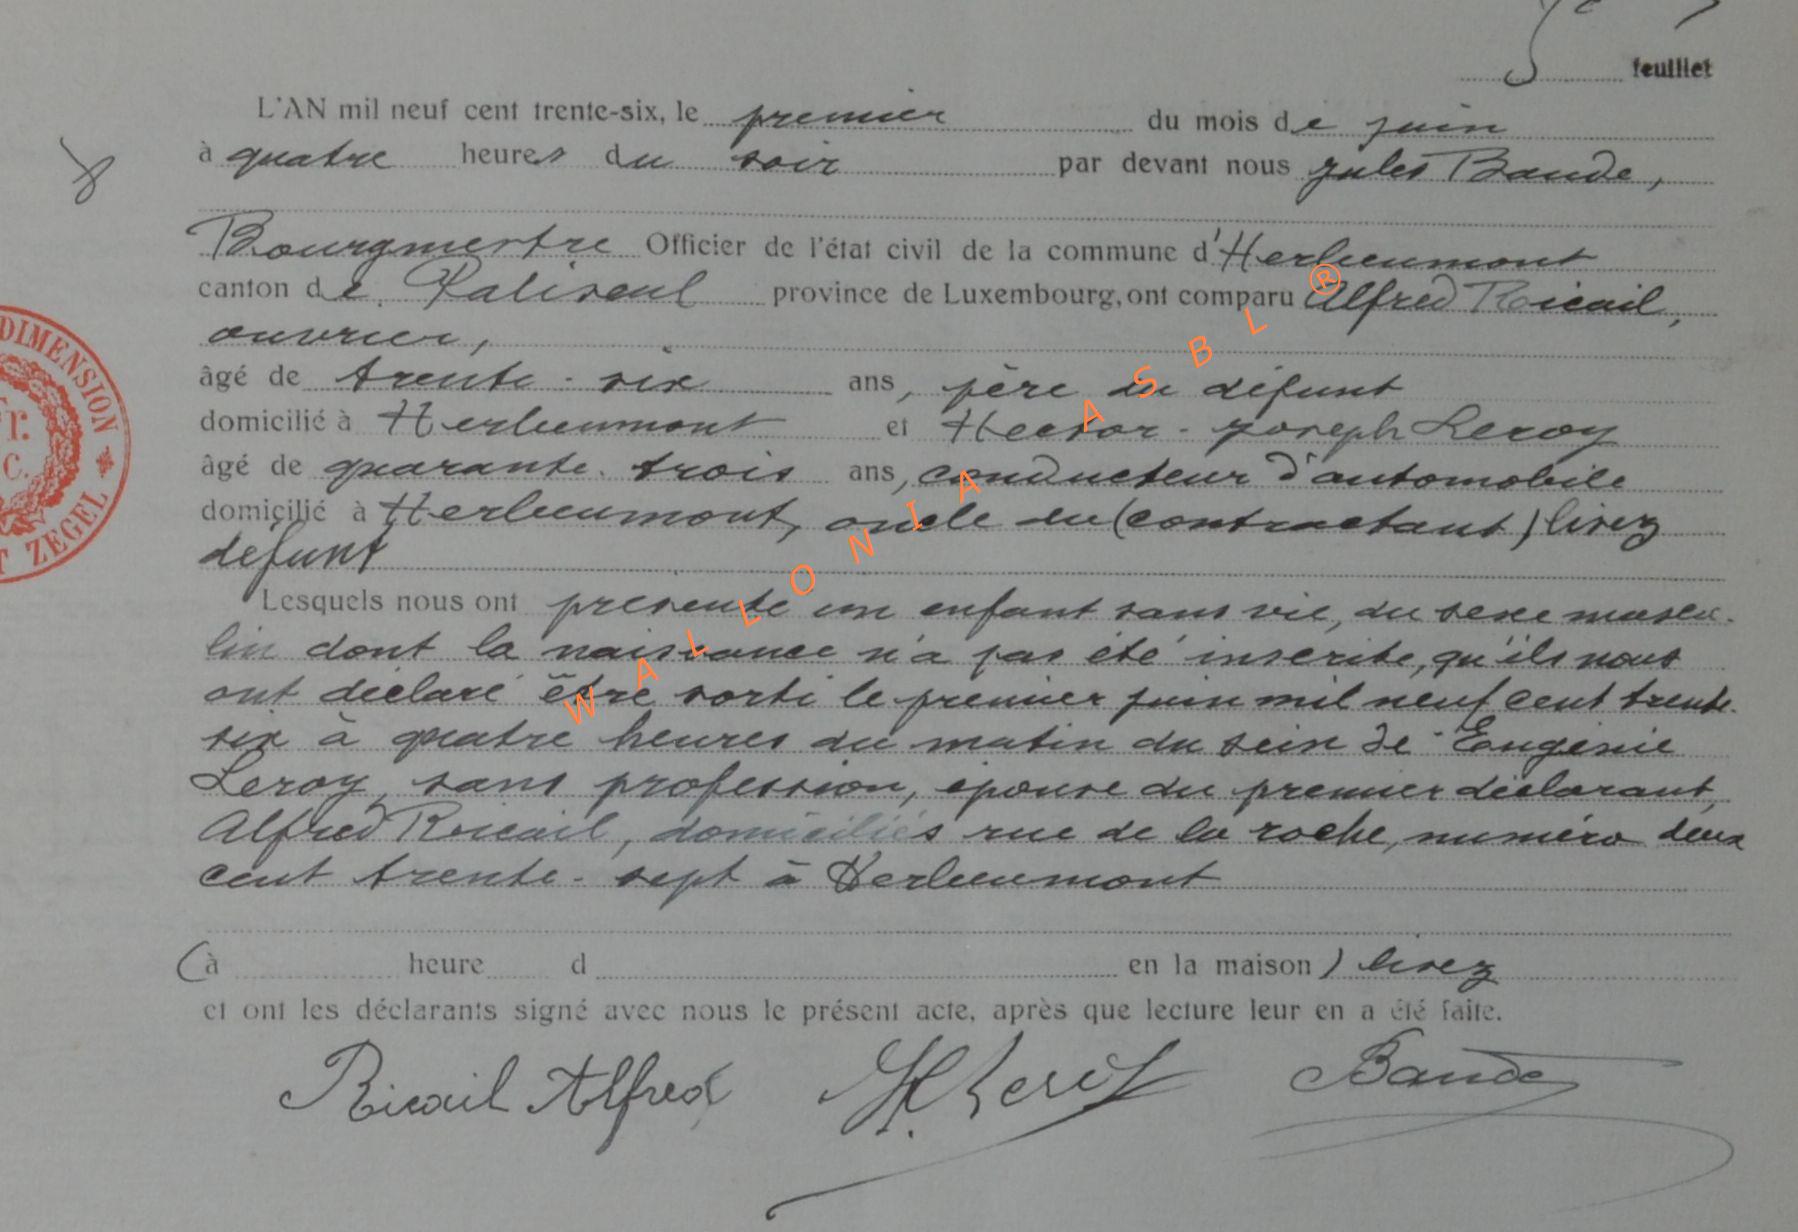 5e
feuillet
L'AN mil neuf cent trente-six, le premier du mois de juin
8
à quatre heures du soir par devant nous Jules Baude,
Bourgmestre Officier de l'état civil de la commune d'Herbeumont
canton de Paliseul province de Luxembourg, ont comparu Alfred Ricail,
ouvrier,
âgé de trente-six ans, père du défunt
domicilié à Herbeumont et Hector-Joseph Leroy
âgé de quarante-trois ans, conducteur d'automobile
domicilié à Herbeumont, oncle du (contractant) lisez
défunt
Lesquels nous ont présenté un enfant sans vie, du sexe mascu-
lin dont la naissance n'a pas été inscrite, qu'ils nous
ont déclaré être sorti le premier juin mil neuf cent trente-
six à quatre heures du matin du sein de Eugénie
Leroy, sans profession, épouse du premier déclarant,
Alfred Ricail, domiciliés rue de la roche, numéro deux
cent trente-sept à Herbeumont
(à heure d en la maison) lisez
et ont les déclarants signé avec nous le présent acte, après que lecture leur en a été faite.
Ricail Alfred H. Leroy Baude
DIMENSION
Fr.
C.
T ZEGEL
WALLONIA ASBL ®